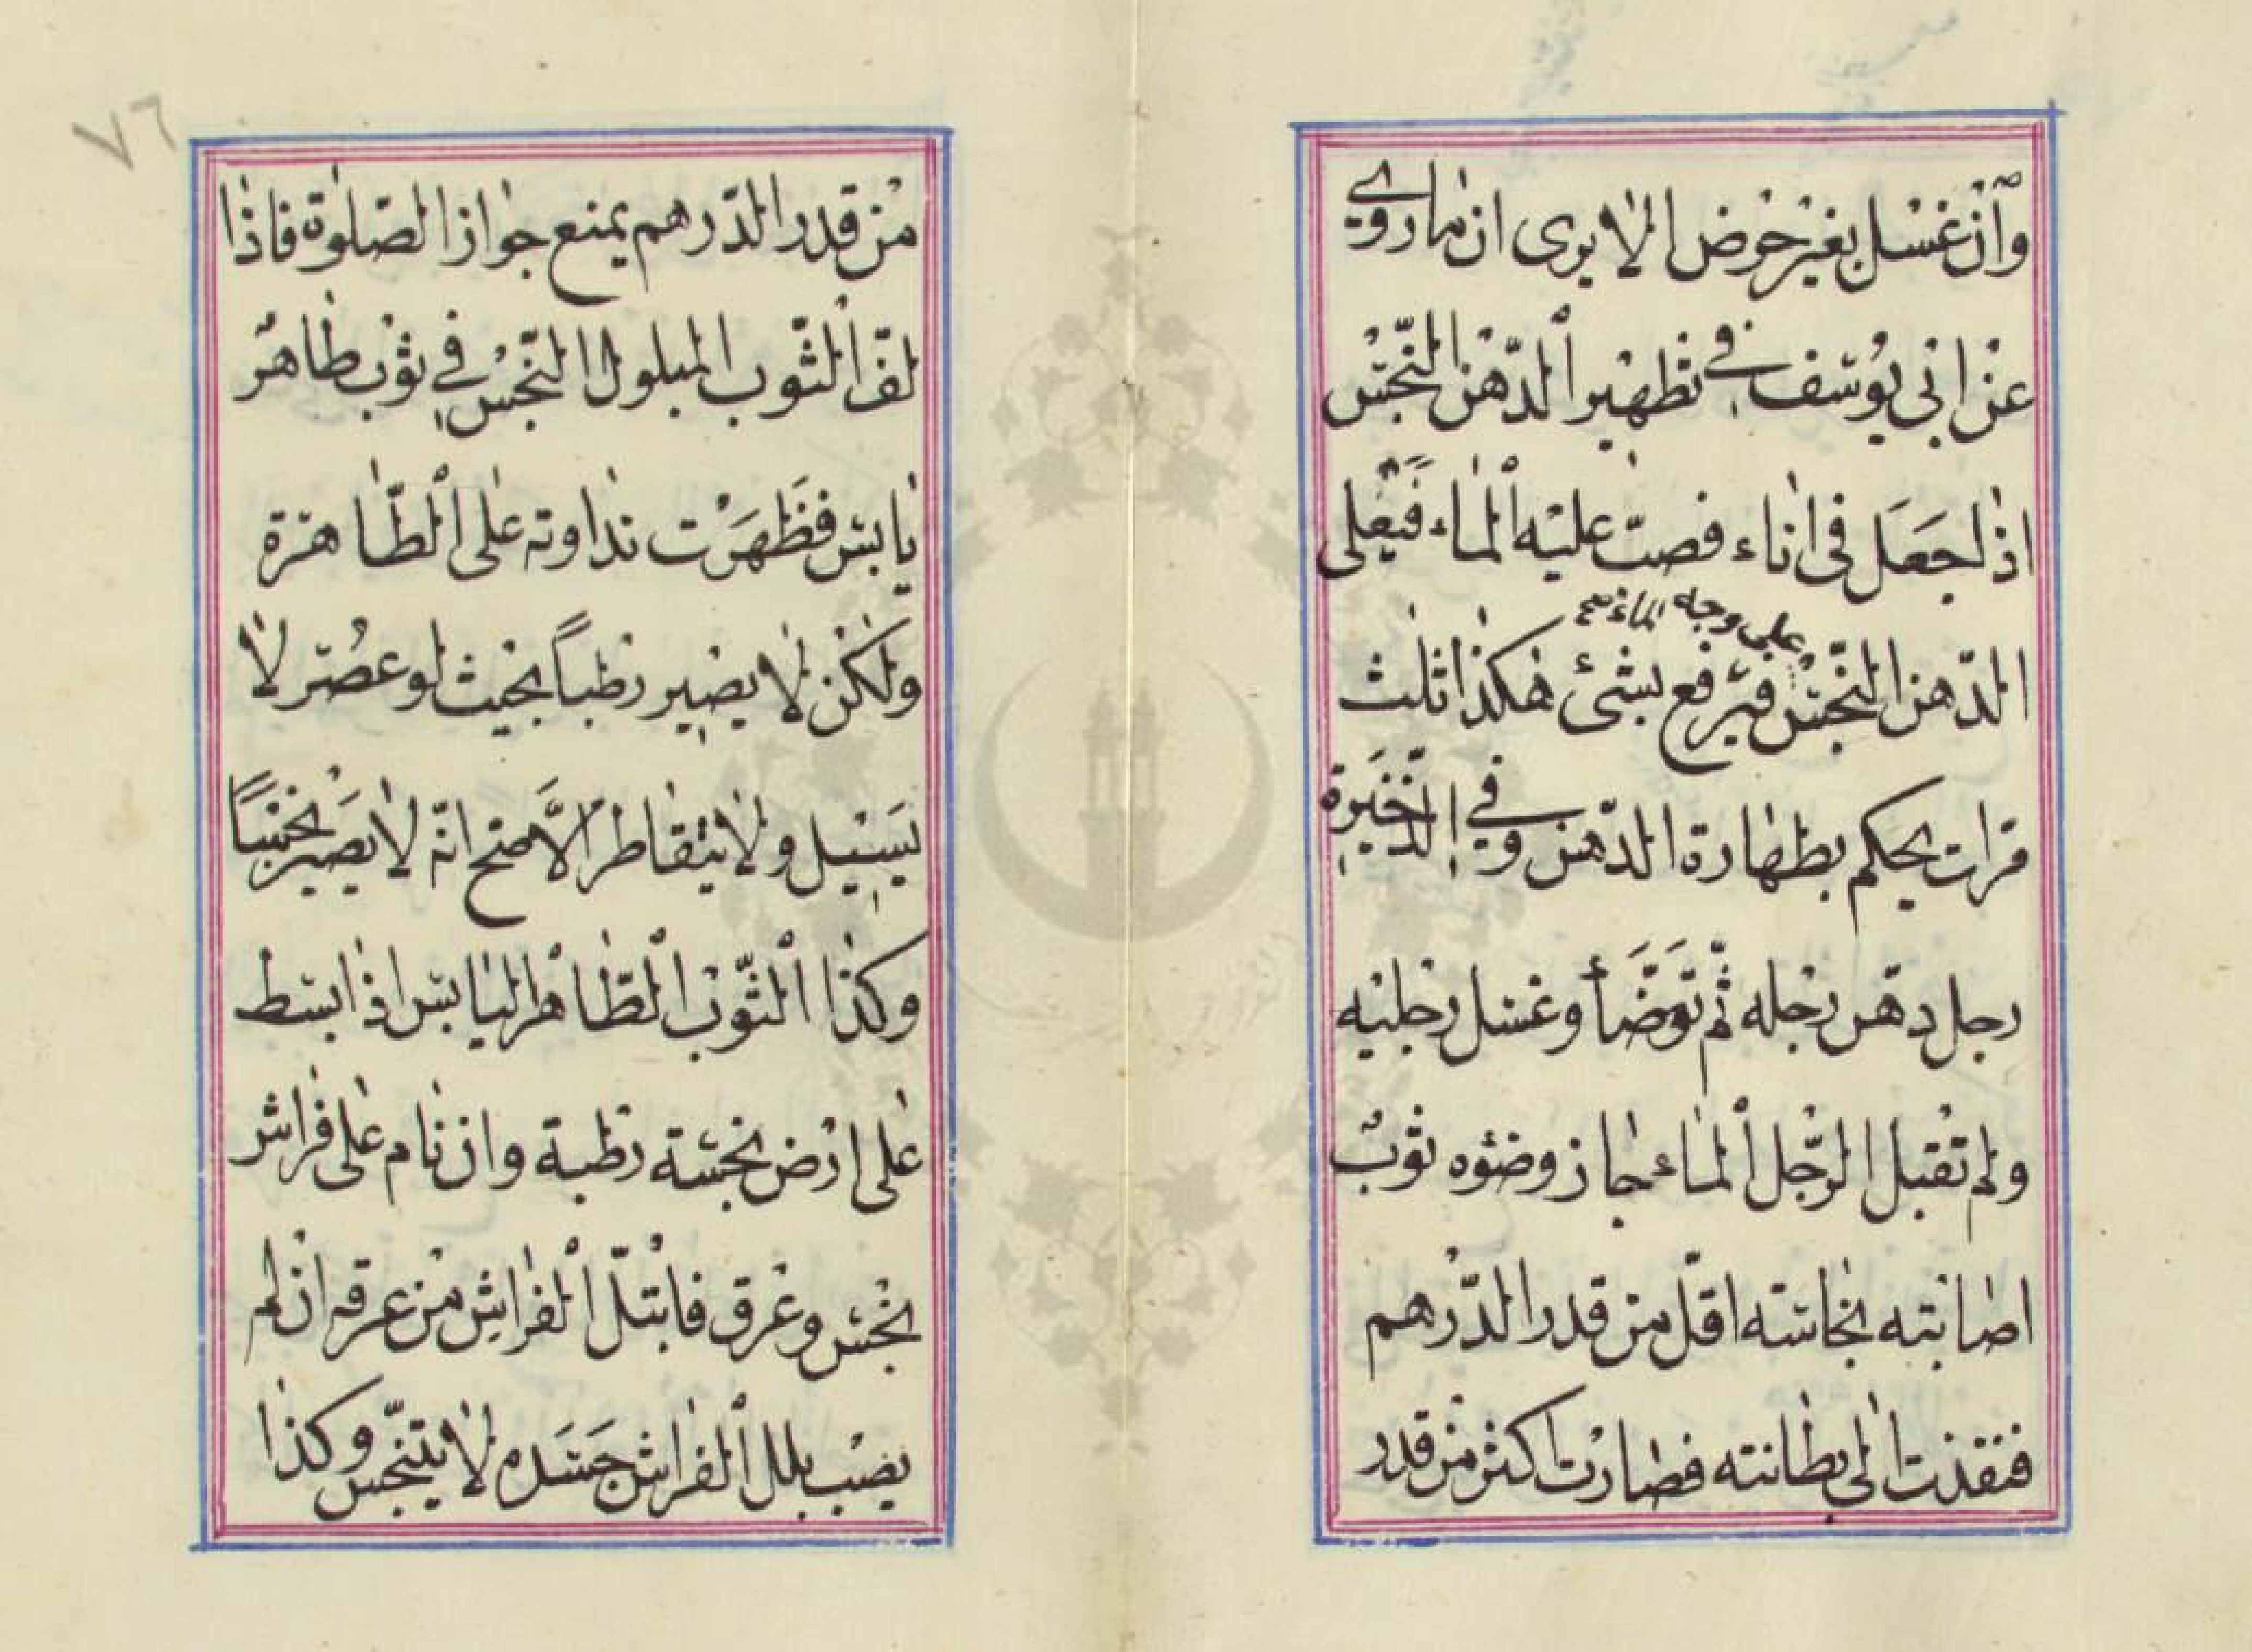 وان غسل بغير خوض الا يرى ان ما روي
عن ابي يوسف في تطهير الدّهن النّجس
اذا جعل في اناء فصبّ عليه الماء فيعلى
على وجه الماء صح
الدّهن النّجس فيرفع بشئ هكذا ثلث
مرات يحكم بطهارة الدّهن وفي الذّخيرة
رجل دهّن رجله ثمّ توضّأ وغسل رجليه
ولم تقبل الرّجل الماء جاز وضؤه ثوب
اصابته نجاسته اقلّ من قدر الدّرهم
فنفذت الى بطانته فصارت اكثر من قدر
٧٦
من قدر الدّرهم يمنع جواز الصّلوة فاذا
لفّ الثّوب المبلول النّجس في ثوب طاهر
يابس فظهرت نداوته على الطّاهرة
ولكن لا يصير رطباً بحيث لو عصر لا
يسيل ولا يتقاطر الاصح انّه لا يصير نجساً
وكذا الثّوب الطّاهر اليابس اذا بسط
على ارض نجسة رطبة وان نام على فراش
نجس وعرق فابتلّ الفراش من عرقه ان لم
يصب بلل الفراش جسده لا يتنجّس وكذا